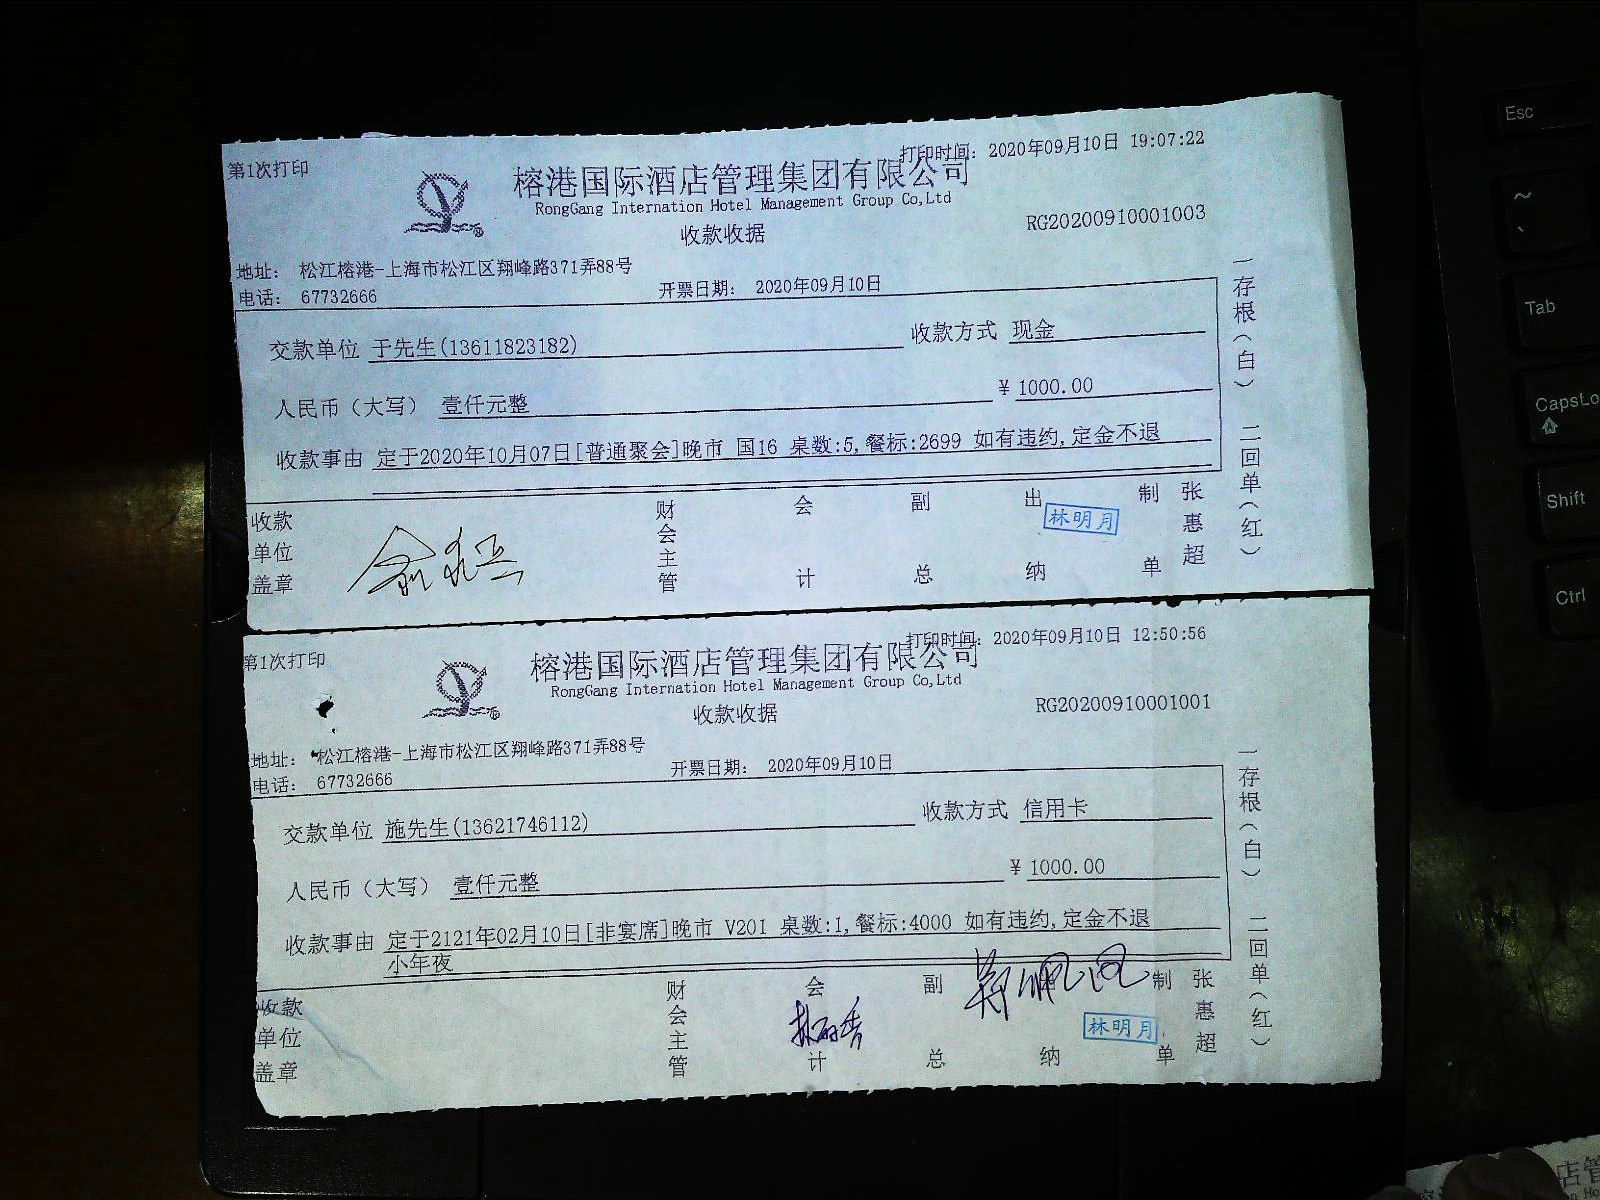 第1次打印
打印时间: 2020年09月10日 19:07:22
榕港国际酒店管理集团有限公司
RongGang Internation Hotel Management Group Co,Ltd
收款收据
RG20200910001003
地址: 松江榕港-上海市松江区翔峰路371弄88号
电话: 67732666
开票日期: 2020年09月10日
交款单位 于先生(13611823182)
收款方式 现金
人民币（大写） 壹仟元整
¥ 1000.00
收款事由 定于2020年10月07日[普通聚会]晚市 国16 桌数:5,餐标:2699 如有违约,定金不退
收款单位盖章
财会主管
会计
副总
出纳
林明月
制单
张惠超
一存根（白）
二回单（红）
第1次打印
打印时间: 2020年09月10日 12:50:56
榕港国际酒店管理集团有限公司
RongGang Internation Hotel Management Group Co,Ltd
收款收据
RG20200910001001
地址: 松江榕港-上海市松江区翔峰路371弄88号
电话: 67732666
开票日期: 2020年09月10日
交款单位 施先生(13621746112)
收款方式 信用卡
人民币（大写） 壹仟元整
¥ 1000.00
收款事由 定于2121年02月10日[非宴席]晚市 V201 桌数:1,餐标:4000 如有违约,定金不退
小年夜
收款单位盖章
财会主管
会计
副总
纳
林明月
制单
张惠超
一存根（白）
二回单（红）
Esc
~
Tab
CapsLo
Shift
Ctrl